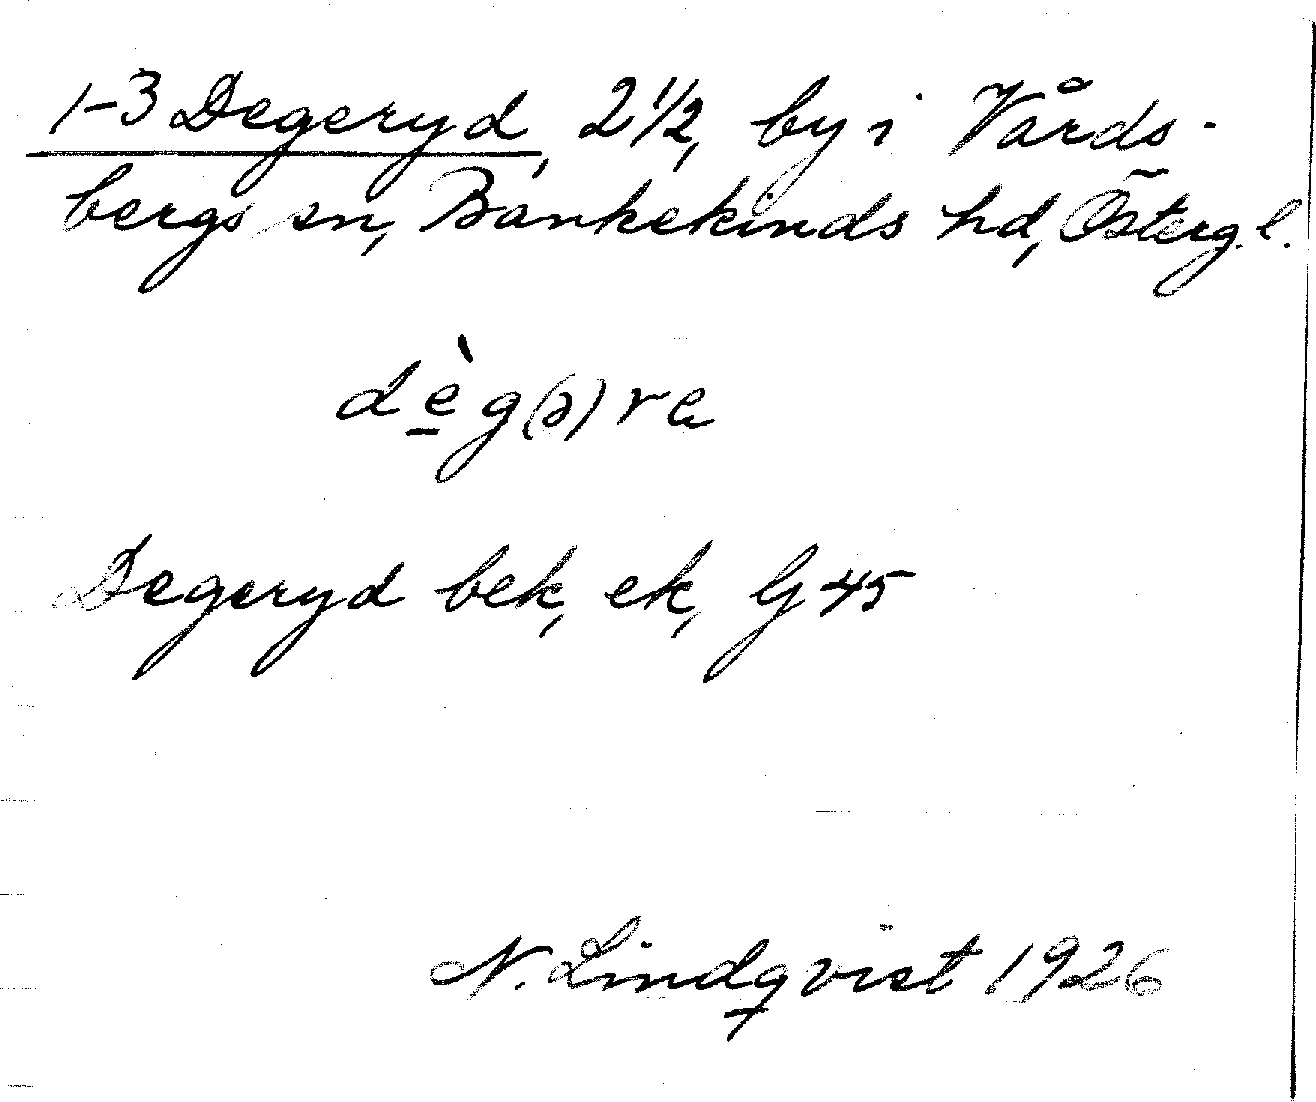 1-3 Degeryd, 2½, by i Vårds-
bergs sn, Bankekinds hd, Österg.l.
dè̱g(ə)ra
Degeryd bek, ek, Gj 45
N. Lindqvist 1926